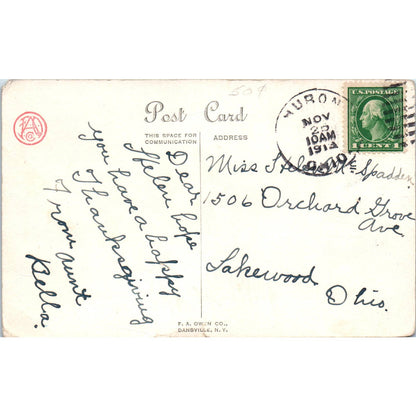 507
Post Card
THIS SPACE FOR
COMMUNICATION
ADDRESS
HURON
NOV
25
10 AM
1914
OHIO
U.S. POSTAGE
1 CENT 1
Dear
Helen hope
you have a happy
Thanksgiving
From Aunt
Bella.
Miss Helen Mc Spadden
1506 Orchard Grove
Ave
Lakewood
Ohio.
F. A. OWEN CO.,
DANSVILLE, N.Y.